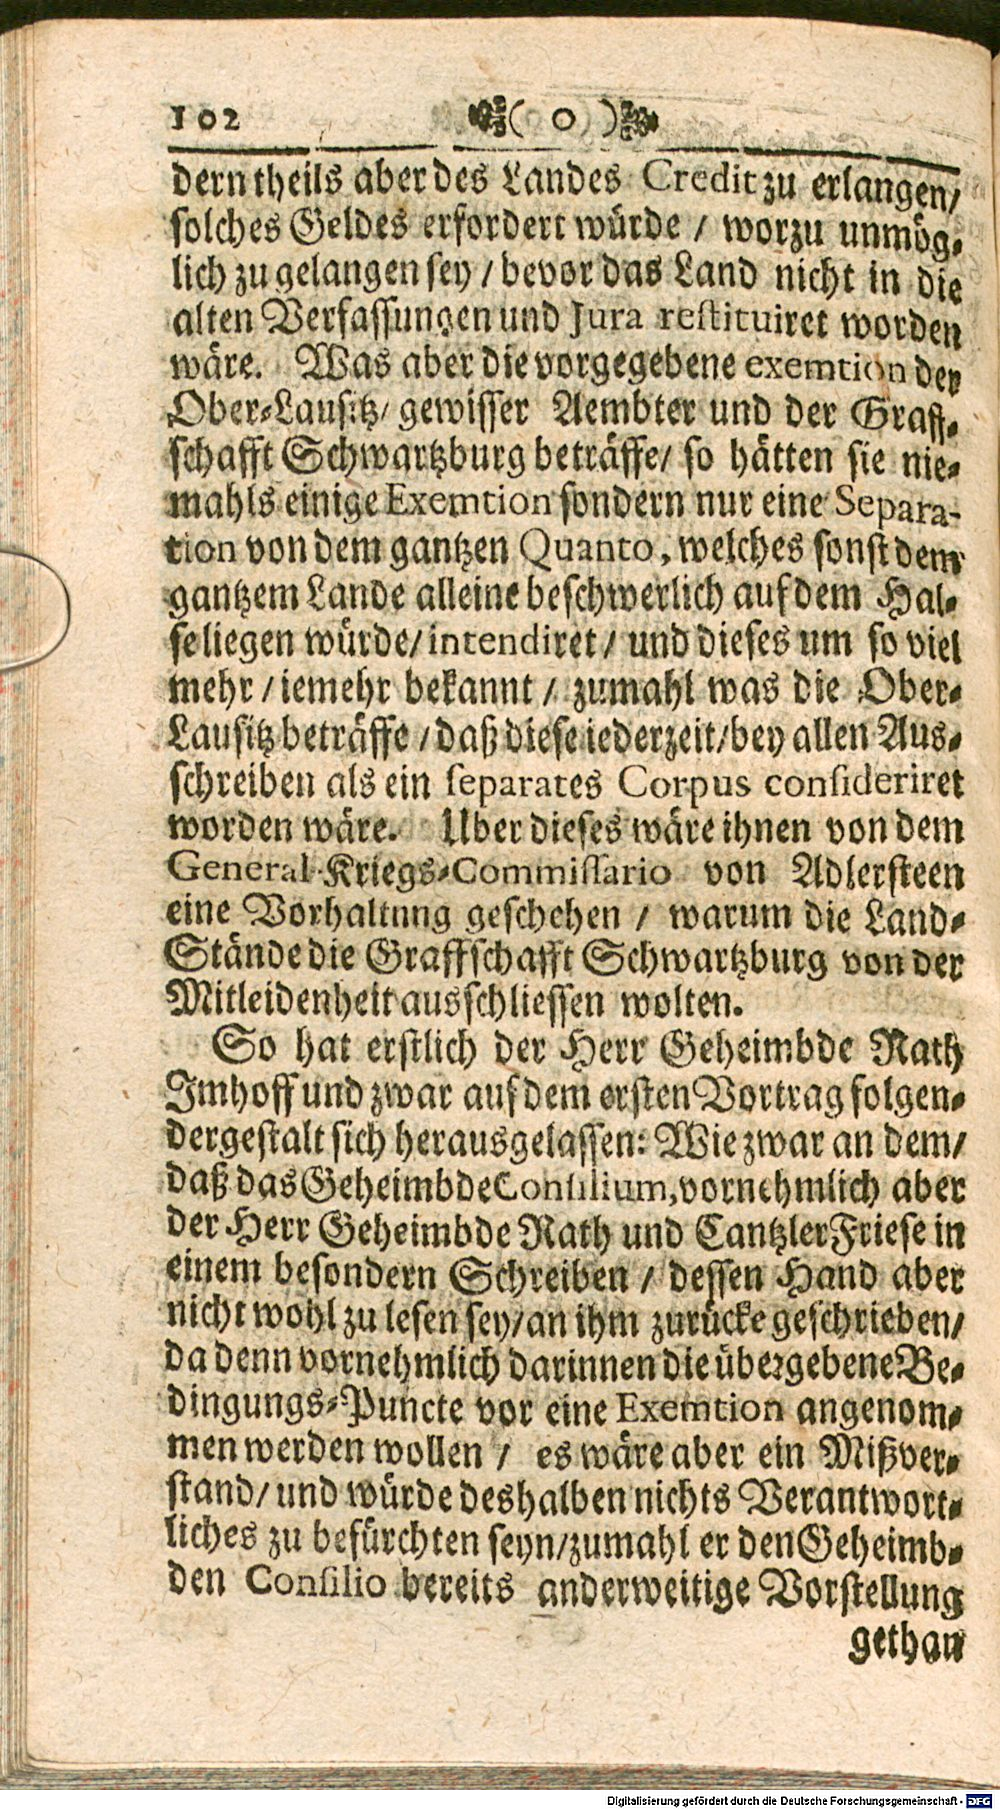 102 ( o )
dern theils aber des Landes Credit zu erlangen/
solches Geldes erfordert würde / worzu unmög-
lich zu gelangen sey / bevor das Land nicht in die
alten Verfassungen und Jura restituiret worden
wäre. Was aber die vorgegebene exemtion der
Ober-Lausitz/ gewisser Aembter und der Graff-
schafft Schwartzburg beträffe/ so hätten sie nie-
mahls einige Exemtion sondern nur eine Separa-
tion von dem gantzen Quanto, welches sonst dem
gantzem Lande alleine beschwerlich auf dem Hal-
se liegen würde/ intendiret / und dieses um so viel
mehr / iemehr bekannt / zumahl was die Ober-
Lausitz beträffe / daß diese iederzeit/bey allen Aus-
schreiben als ein separates Corpus consideriret
worden wäre. Uber dieses wäre ihnen von dem
General-Kriegs-Commissario von Adlersteen
eine Vorhaltung geschehen / warum die Land-
Stände die Graffschafft Schwartzburg von der
Mitleidenheit ausschliessen wolten.
So hat erstlich der Herr Geheimbde Rath
Imhoff und zwar auf dem ersten Vortrag folgen-
dergestalt sich herausgelassen: Wie zwar an dem/
daß das Geheimbde Consilium, vornehmlich aber
der Herr Geheimbde Rath und Cantzler Friese in
einem besondern Schreiben / dessen Hand aber
nicht wohl zu lesen sey/an ihm zurücke geschrieben/
da denn vornehmlich darinnen die übergebene Be-
dingungs-Puncte vor eine Exemtion angenom-
men werden wollen / es wäre aber ein Mißver-
stand/ und würde deshalben nichts Verantwort-
liches zu befürchten seyn/zumahl er den Geheimb-
den Consilio bereits anderweitige Vorstellung
gethan
Digitalisierung gefördert durch die Deutsche Forschungsgemeinschaft - DFG